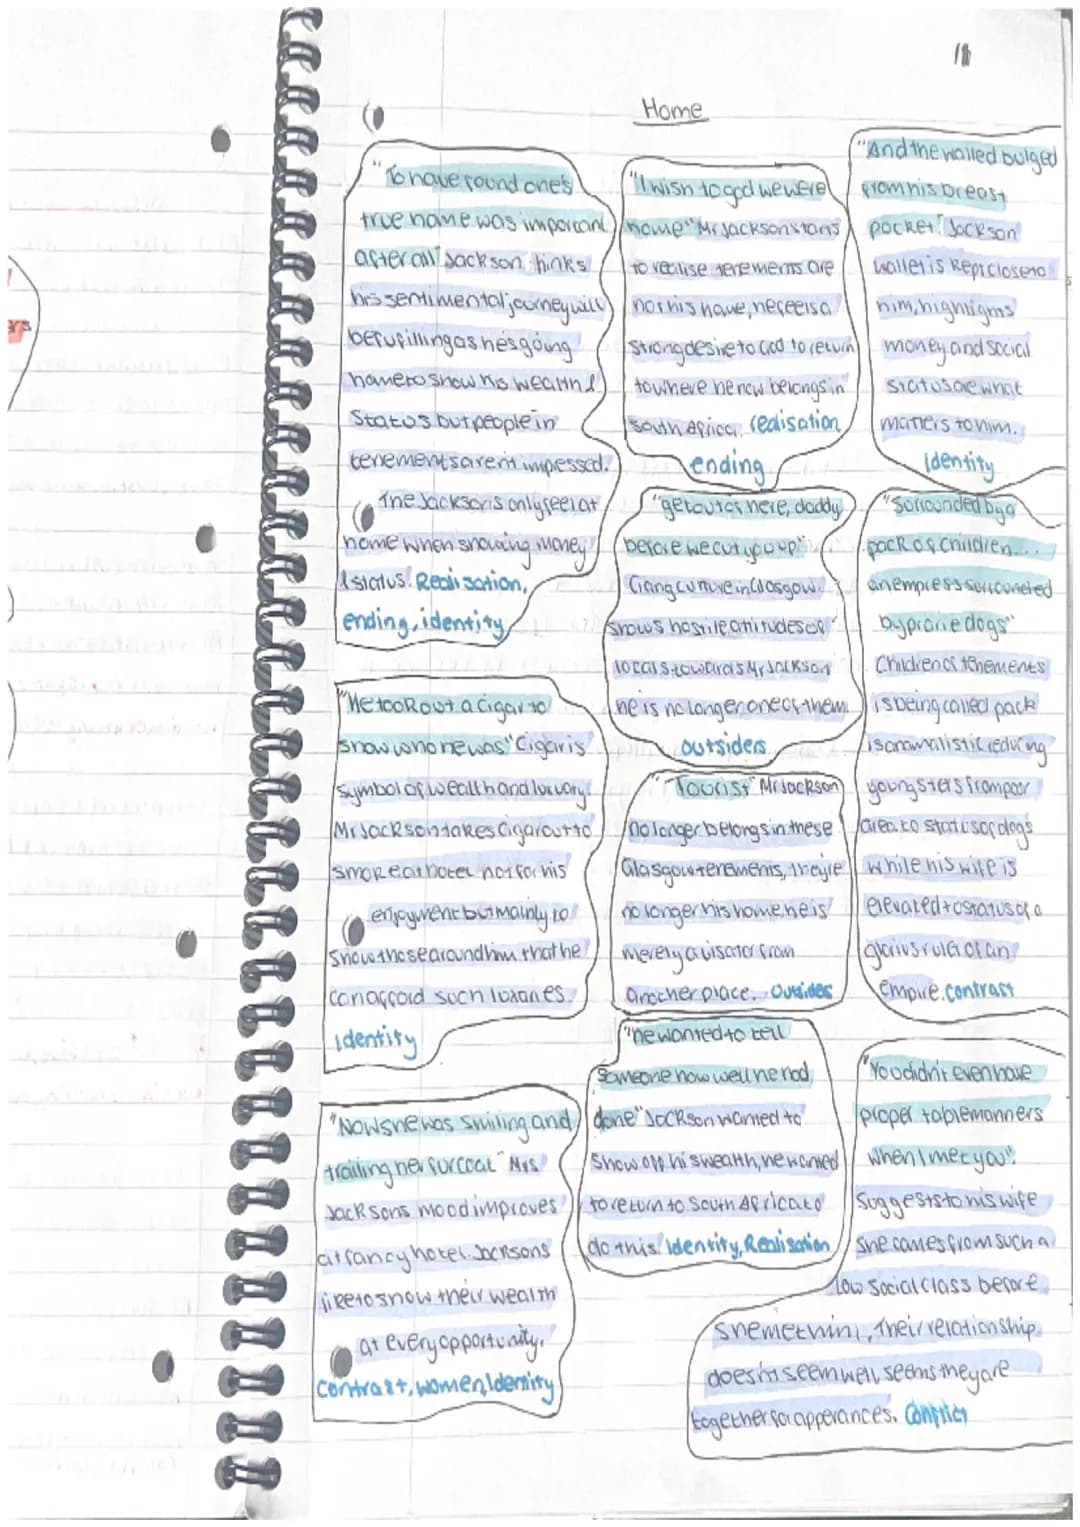 Home
"To have found one's
true name was important
after all" Jackson thinks
his sentimental journey will
be fufilling as hes going
home to show his wealth &
status but people in
tenements arent impressed.
The Jacksons only feel at
home when showing money
& status. Realisation,
ending, identity
"He took out a cigar to
show who he was" Cigar is
symbol of wealth and luxury.
Mr Jackson takes cigar out to
smoke at hotel not for his
enjoyment but mainly to
show those around him that he
can afford such luxaries.
Identity
"Now she was smiling and
trailing her fur coat" Mrs
Jacksons mood improves
at fancy hotel. Jacksons
like to show their wealth
at every opportunity.
contrast, women, Identity
"I wish to god we were
home" Mr Jackson starts
to realise tenements are
not his home, he feels a
strong desire to God to return
to where he now belongs in
South Africa. realisation
ending
"get out of here, daddy
before we cut you up"
Gang culture in Glasgow.
shows hostile attitudes of
locals towards Mr Jackson
he is no longer one of them
outsiders
"Tourist" Mr Jackson
no longer belongs in these
Glasgow tenements, they're
no longer his home, he is
merely a visator from
another place. Outsides
"he wanted to tell
someone how well he had
done" Jackson wanted to
show off his wealth, he wanted
to return to South Africa to
do this. Identity, Realisation
"And the walled bulged
from his breast
pocket." Jackson
wallet is kept close to
him, highlights
money and social
status are what
matters to him.
Identity
"Surrounded by a
pack of children....
an empress surrounded
by prairie dogs"
Children of tenements
is being called pack
is anamalistic reducing
youngsters from poor
area to status of dogs
while his wife is
elevated to status of a
glorius ruler of an
empire. contrast
"You didn't even have
proper table manners
when I met you".
Suggests to his wife
she comes from such a
low social class before
she met him. Their relationship
doesn't seem well, seems they are
together for apperances. Conflict